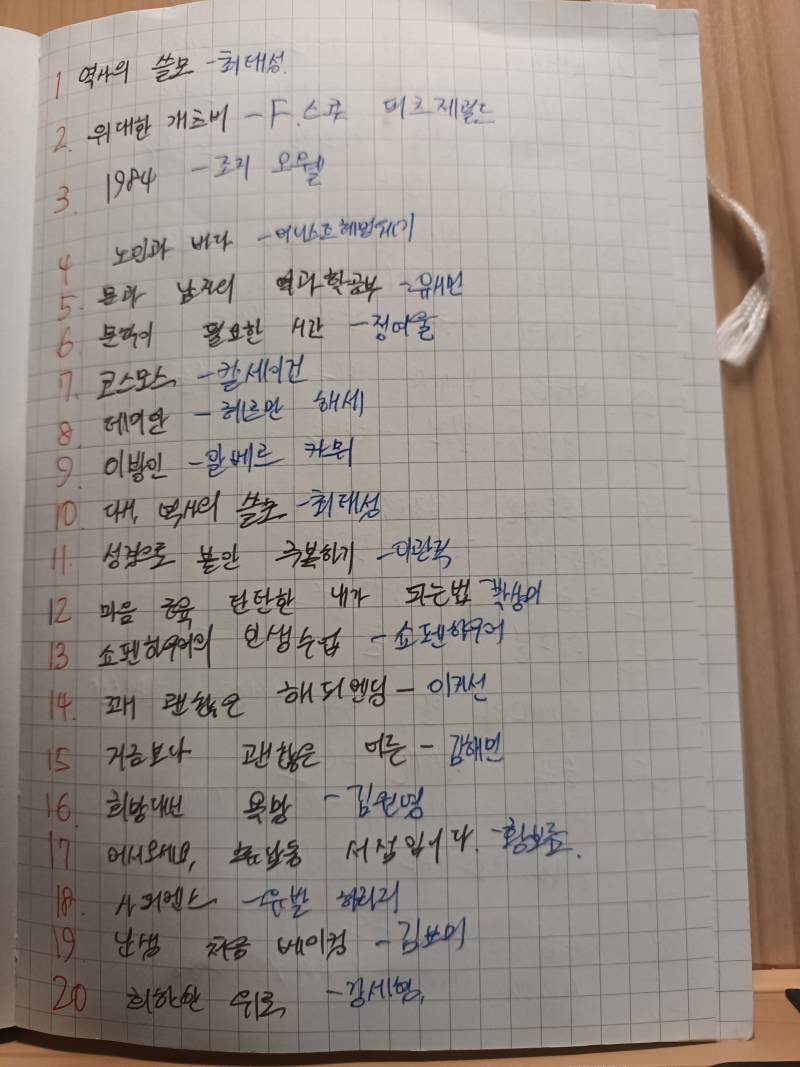 1 역사의 쓸모 - 최태성
2. 위대한 개츠비 - F. 스콧 피츠제럴드
3. 1984 - 조지 오웰
4 노인과 바다 - 어니스트 헤밍웨이
5. 문과 남자의 과학공부 - 유시민
6. 문학이 필요한 시간 - 정여울
7. 코스모스 - 칼세이건
8 데미안 - 헤르만 헤세
9. 이방인 - 알베르 카뮈
10. 역사의 쓸모 - 최태성
11. 성경으로 불안 극복하기 - 이관직
12 마음 근육 단단한 내가 되는법 박상미
13 쇼펜하우어의 인생수업 - 쇼펜하우어
14. 꽤 괜찮은 해피엔딩 - 이지선
15 지금보다 괜찮은 어른 - 김혜민
16. 희망대신 욕망 - 김원영
17 어서오세요, 휴남동 서점입니다. - 황보름.
18. 사피엔스 - 유발 하라리
19. 난생 처음 베이킹 - 김보미
20 희한한 위로 - 강세형.